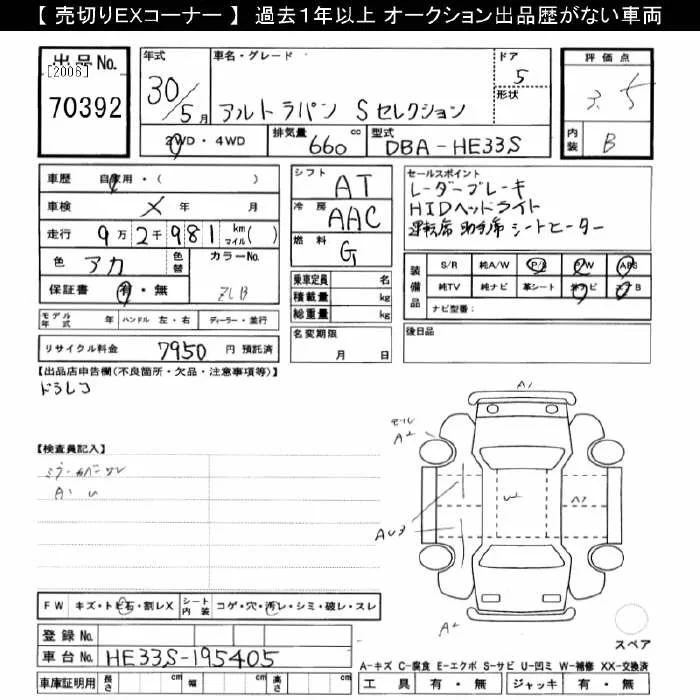 【 売切りEXコーナー 】 過去1年以上 オークション出品歴がない車両
出品No.
[2006]
70392
年式 車名・グレード ドア
30/5月 アルトラパン Sセレクション 5
形状
2WD・4WD 排気量 660 cc 型式 DBA-HE33S
評価点
3.5
内装 B
車歴 自家用・( )
車検 × 年 月
走行 9万2千981 km マイル( )
色 アカ 色替 カラーNo. ZLB
保証書 有・無
モデル年式 年 ハンドル 左・右 ディーラー・並行
リサイクル料金 7950 円 預託済
シフト AT
冷房 AAC
燃料 G
乗車定員 名
積載量 kg
総重量 kg
名変期限
月 日
セールスポイント
レーダーブレーキ
HIDヘッドライト
運転席 助手席 シートヒーター
装備品 S/R 純A/W P/S P/W ABS
純TV 純ナビ 革シート 社ナビ エアB
ナビ型番:
後日品
【出品店申告欄(不良箇所・欠品・注意事項等)】
ドラレコ
【検査員記入】
ミラーカバーワレ
A・U
A1
モール
A2
U2
AU3
A2
FW キズ・トビ石・割レX シート内装 コゲ・穴・汚レ・シミ・破レ・スレ
登録No.
車台No. HE33S-195405
車庫証明用 長さ cm 幅 cm 高さ cm
スペア
A-キズ C-腐食 E-エクボ S-サビ U-凹ミ W-補修 XX-交換済
工具 有・無 ジャッキ 有・無